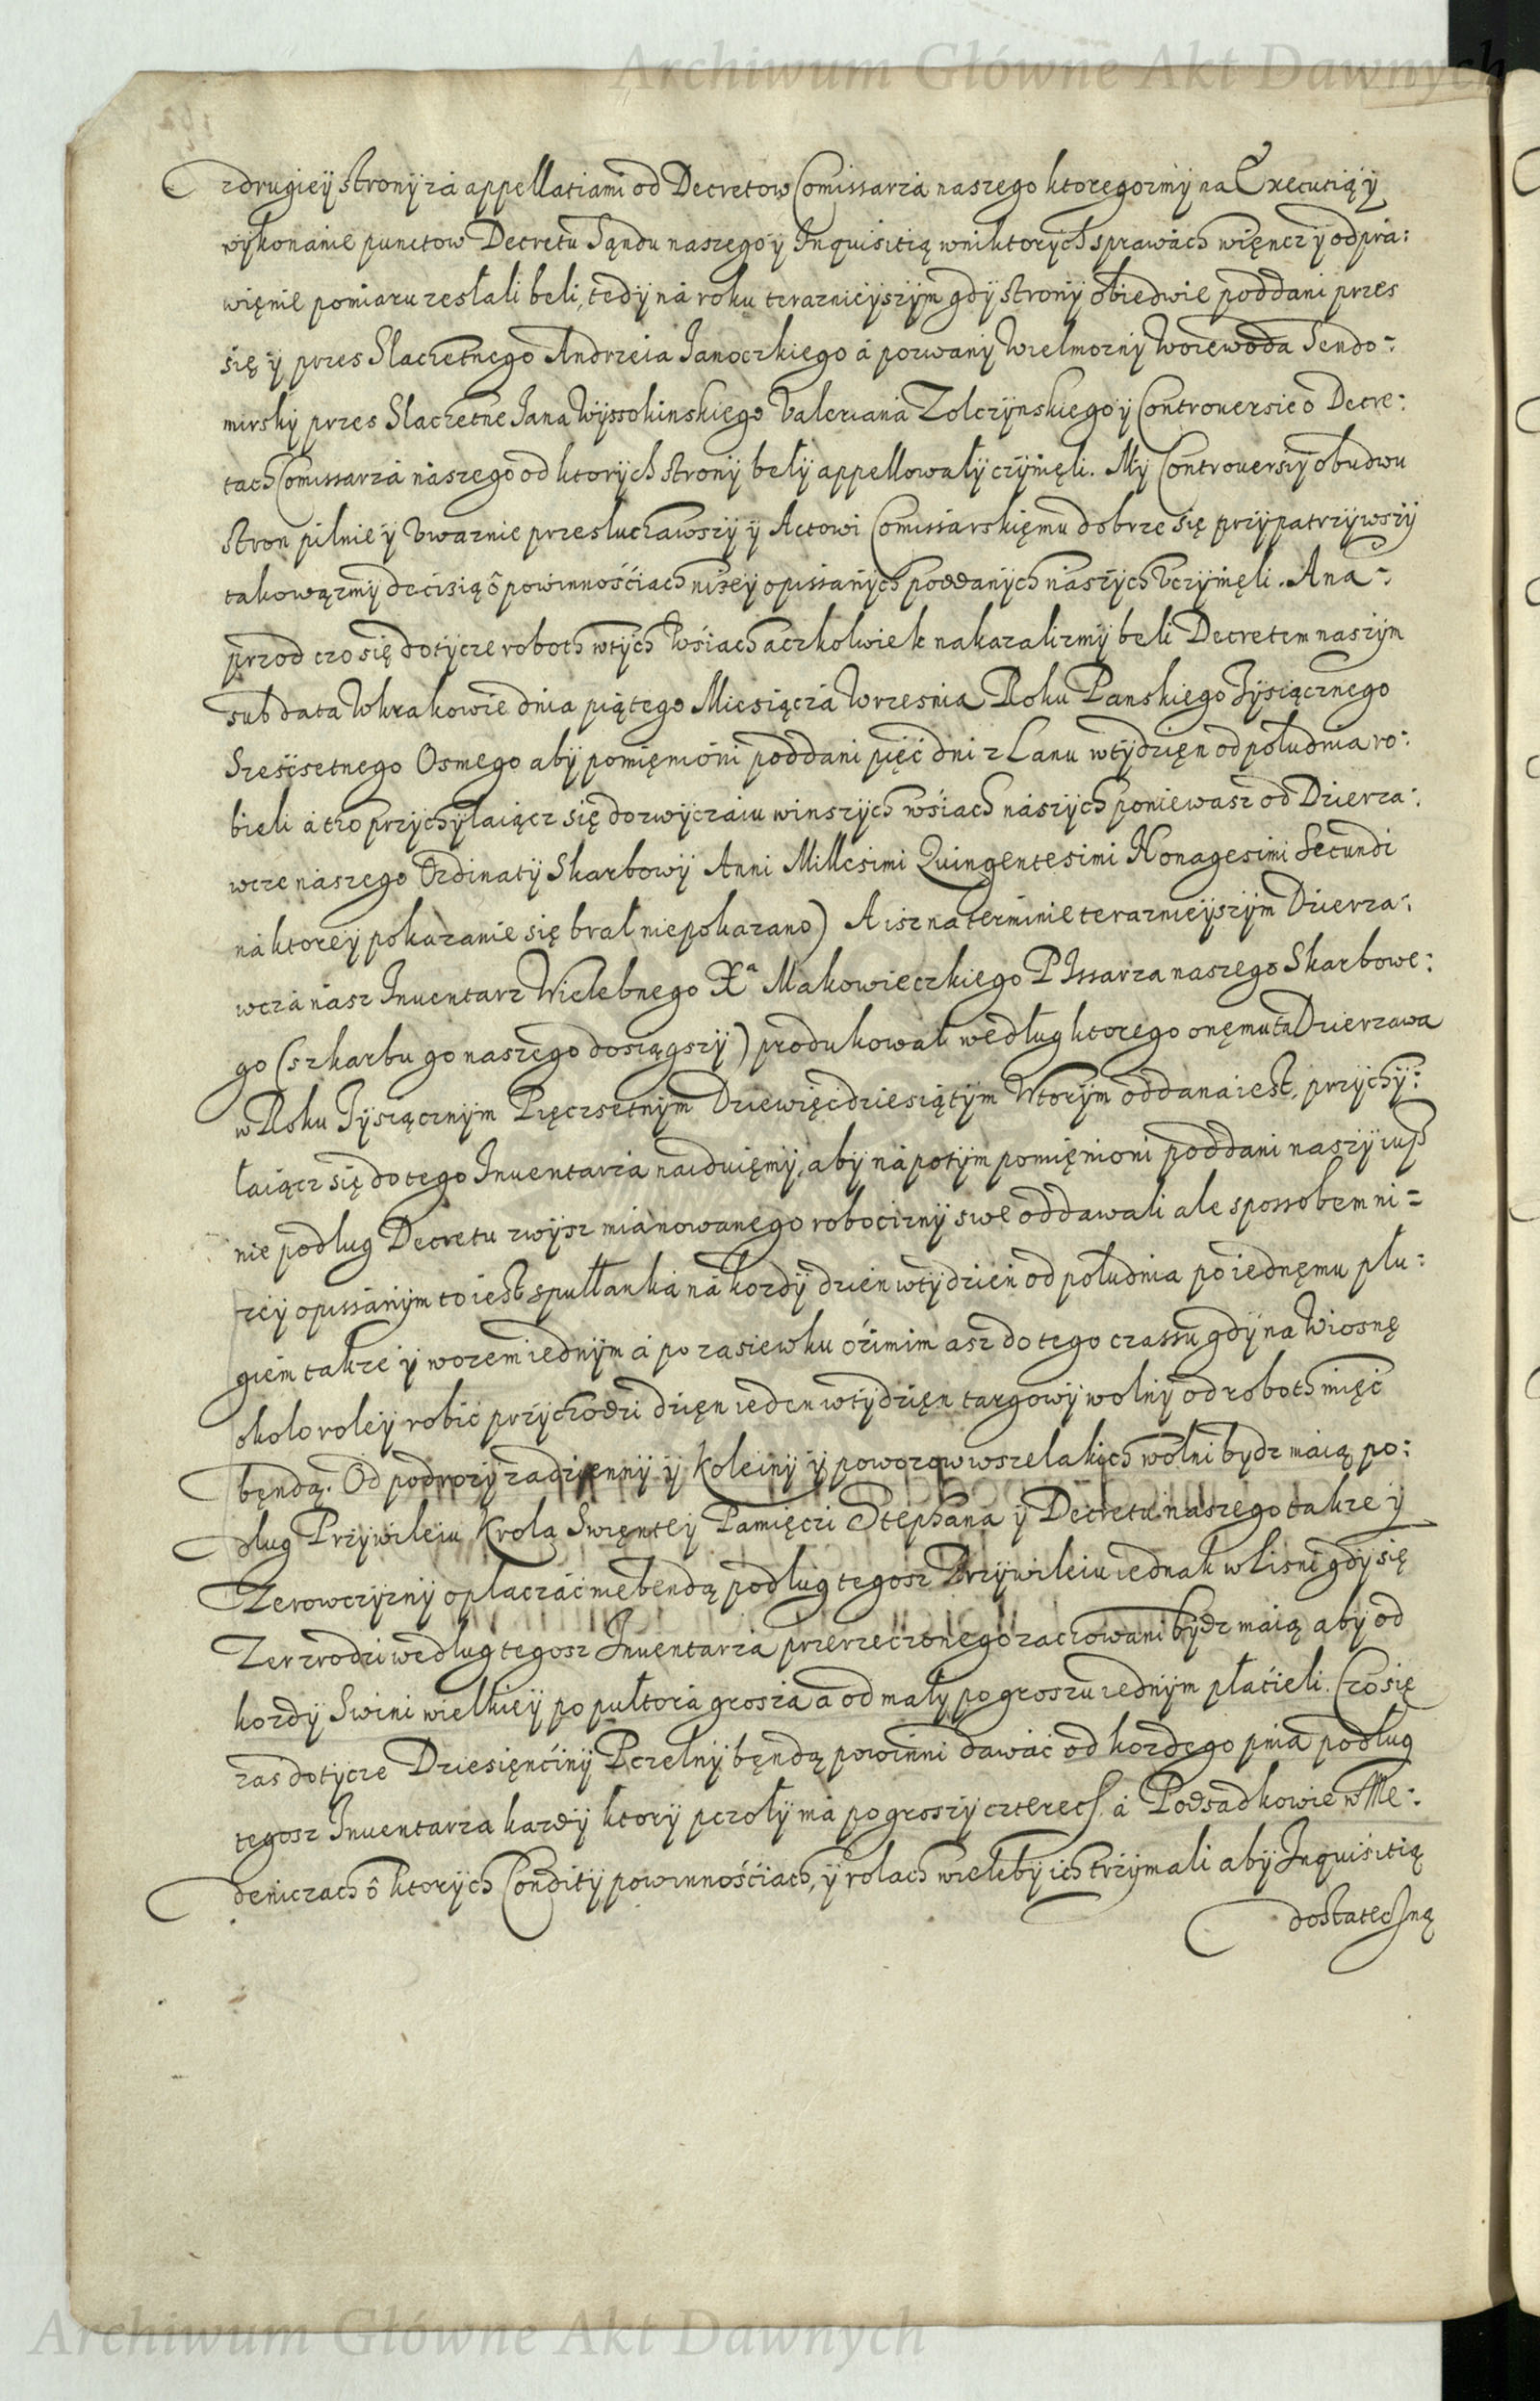 Archiwum Główne Akt Dawnych
z drugieÿ stronÿ zá appellatiami od Decretow Comissarza naszego ktoregozmÿ na Executią ÿ
wÿkonanie punctow Decretu Sąndu naszego ÿ Inquisitią w niktorÿch sprawách więncz ÿ odprá:
więnie pomiaru zesłali beli, tedÿ ná roku teraznieÿszÿm gdÿ stronÿ obiedwie poddani przes
się ÿ przes Slachetnego Andrzeia Janoczkiego á pozwanÿ Wielmoznÿ Woiewoda Sendo-:
mirskÿ przes Slachetne Jana Wÿssokinskiego Valeriana Zolczÿnskiego ÿ Controuersie o Decre:
tach Comissarzá nászego od ktorÿch stronÿ bełÿ appellowałÿ czÿnięli. Mÿ Controuersiÿ obudwu
stron pilnie ÿ vwaznie przesłuchawszÿ ÿ Actowi Comissarskięmu dobrze się przÿpatrzÿwszÿ
takowązmÿ decisią o powinnościach nizeÿ opissanÿch poddanÿch naszÿch vczÿnięli. A na-:
przod czo się dotÿcze roboth w tÿch wsiach aczkolwiek nakazalizmÿ beli Decretem naszÿm
sub data w Krakowie dnia piątego Miesiącza Wrzesnia Roku Panskiego Tÿsiącznego
Szescsetnego Osmego abÿ pomięnioni poddani pięć dni z Lanu w tÿdzięn od południa ro:
bieli á tho przÿchÿlaiącz się do zwÿczaiu w inszÿch wsiach nászÿch poniewasz od Dzierza:
wcze nászego Ordinatÿ Skarbowÿ Anni Millesimi Quingentesimi Nonagesimi Secundi
ná ktoreÿ pokazanie się brał nie pokazano) A isz na terminie teraznieÿszÿm Dzierza-:
wczá nász Inuentarz Wielebnego Xª Makowieczkiego PIssarza naszego Skarbowe:
go (s zkarbu go naszego dosiągszÿ) produkował według ktorego onęmu ta Dzierzawa
w Roku Tÿsiącznÿm Pięczsetnÿm Dziewięćdziesiątÿm Wtorÿm oddana iest, przÿchÿ:
łaiącz się do tego Inuentarza naiduięmÿ, abÿ ná potÿm pomięnioni poddani naszÿ iusz
nie podług Decretu zwÿsz mianowanego robociznÿ swe oddawali ale spossobem ni=
zeÿ opissánÿm to iest s pułłanká ná kozdÿ dzien w tÿdzień od południa po iednęmu płu:
giem takze ÿ wozem iednÿm á po zasiewku ozimim asz do tego czassu gdÿ na Wiosnę
okolo roleÿ robić przÿchodzi dzięn ieden w tÿdzięn targowÿ wolnÿ od roboth mięć
będą. Od podrozÿ zadziennÿ ÿ Koleinÿ ÿ powozow wszelakich wolni bÿdz máią po:
dług Przÿwileiu Krolá Swięnteÿ Pamięczi Stephana ÿ Decretu naszego takze ÿ
Zerowczÿznÿ opłaczáć nie bendą podług tegosz Przÿwileiu iednak w Lisni gdÿ się
Zer zrodzi według tegosz Inuentarza przerzeczonego zachowani bÿdz máią abÿ od
kozdÿ Swini wielkieÿ po pułtora grosza á od małÿ po groszu iednÿm płácieli. Czo się
zas dotÿcze Dziesięńcinÿ Pczelnÿ będą powinni dawać od kozdego pniá podług
tegosz Inuentarza kazdÿ ktorÿ pczołÿ má po groszÿ czterech. á Podsadkowie w Me-:
deniczach o ktorÿch Conditÿ powinnościach, ÿ rolach wieleby ich trzÿmali abÿ Inquisitią
dostateczną
Archiwum Główne Akt Dawnych